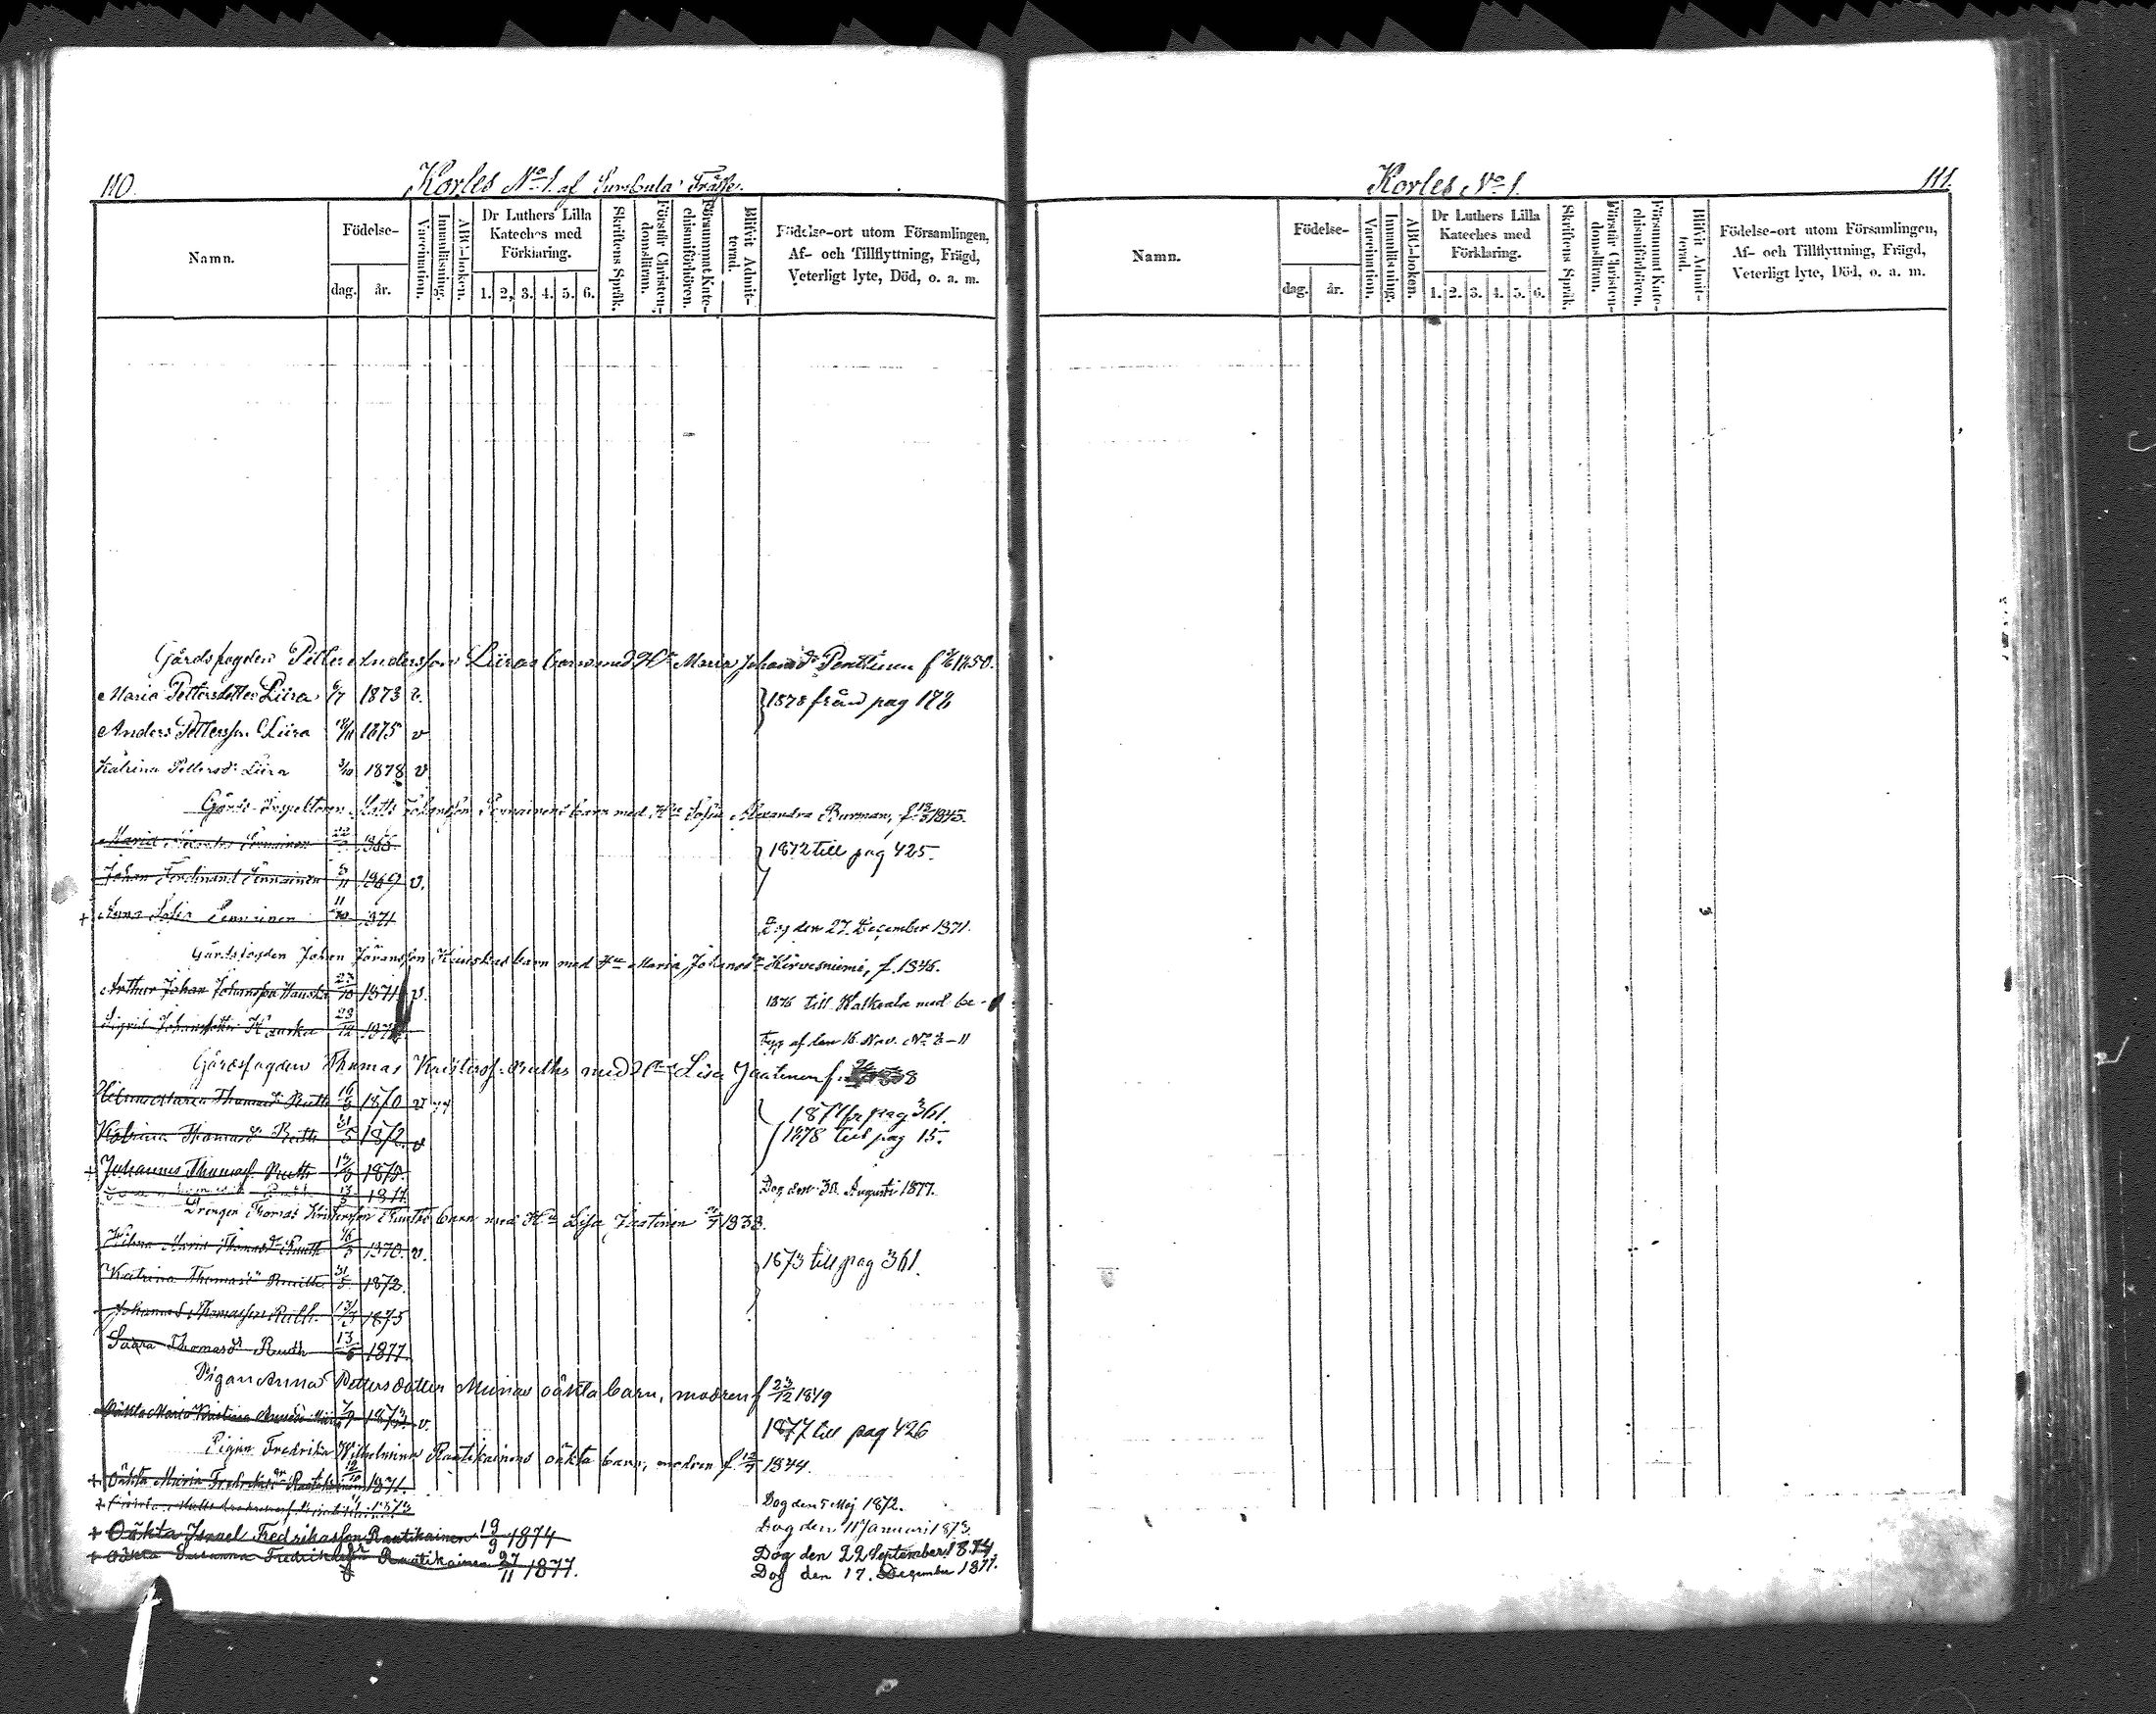 110.
Korles No 1. af
Namn.
Födelse-
dag.
år.
Vaccination.
Innanläsning.
ABC-boken.
Dr Luthers Lilla
Kateches med
Förklaring.
1. 2. 3. 4. 5. 6.
Skriftens Språk.
Förstår Christen-
domsläran.
Försummat Kate-
chismiförhören.
Blifvit Admit-
terad.
Födelse-ort utom Församlingen,
Af- och Tillflyttning, Frägd,
Veterligt lyte, Död, o. a. m.
Gårdsfogden Petter Andersson Liiras barn med Hu Maria Johansdr f 1850.
Maria Pettersdotter Liira 6/7 1873 v.
1878 från pag 178
Anders Petterson Liira 1875 v
Katrina Pettersdr Liira 3/10 1878 v
Gårds-Inspektoren Matts Johansson barn med Hu Sofia Alexandra Burman, f. 1843.
Maria
1872 till pag 425.
Johan Ferdinand 1869 v.
+ Anna Sofia 1871
Dog den 27. December 1871.
Gårdsfogden Johan Göransson barn med Hu Maria Johansdr Hirvesniemi, f. 1846.
Arthur Johan Johansson 23/10 1871 v.
1876 till Walkeala med be-
Sigrid Johansdotter 28/12
tyg af den 16 Nov. No
Gårdsfogden Thomas Kristersson Ruths med Hu Lisa Jaatinen f.
Hilma Maria Thomasdr Ruth 16/3 1870 v
1877 fr pag 361.
Katrina Thomasdr Ruth 31/5 1872. v
1878 till pag 15.
+ Johannes Thomass. Ruth 1875.
Dog den 30. Augusti 1877.
1877
Drengen Thomas Kristersson Ruuths barn med Hu Lisa Jaatinen 1838.
Hilma Maria Thomasdr Ruuth 16/3 1870. v.
1873 till pag 361.
Katrina Thomasdr Ruuth 31/5 1872.
Johannes Thomasson Ruth 1875
Saara Thomasdr Ruuth 13/5 1877.
Pigan Anna Pettersdotter Muinas oäkta barn, modren f 23/12 1849
Oäkta Maria Kristina 1873 v.
1877 till pag 426
Pigan Fredrika Wilhelmina Raatikainens oäkta barn, modren f. 1844.
+ Oäkta Maria Fredrikasdr Raatikainen 12/10 1871.
Dog den 5 Maj 1872.
Dog den 11 Januari 1873.
+ Oäkta Israel Fredrikasson Raatikainen 19/9 1874
Dog den 22 September 1874.
+ Oäkta Susanna Fredrikasdr Raatikainen 27/11 1877.
Dog den 17. December 1877.
Korles No 1.
111.
Namn.
Födelse-
dag.
år.
Vaccination.
Innanläsning.
ABC-boken.
Dr Luthers Lilla
Kateches med
Förklaring.
1. 2. 3. 4. 5. 6.
Skriftens Språk.
Förstår Christen-
domsläran.
Försummat Kate-
chismiförhören.
Blifvit Admit-
terad.
Födelse-ort utom Församlingen,
Af- och Tillflyttning, Frägd,
Veterligt lyte, Död, o. a. m.